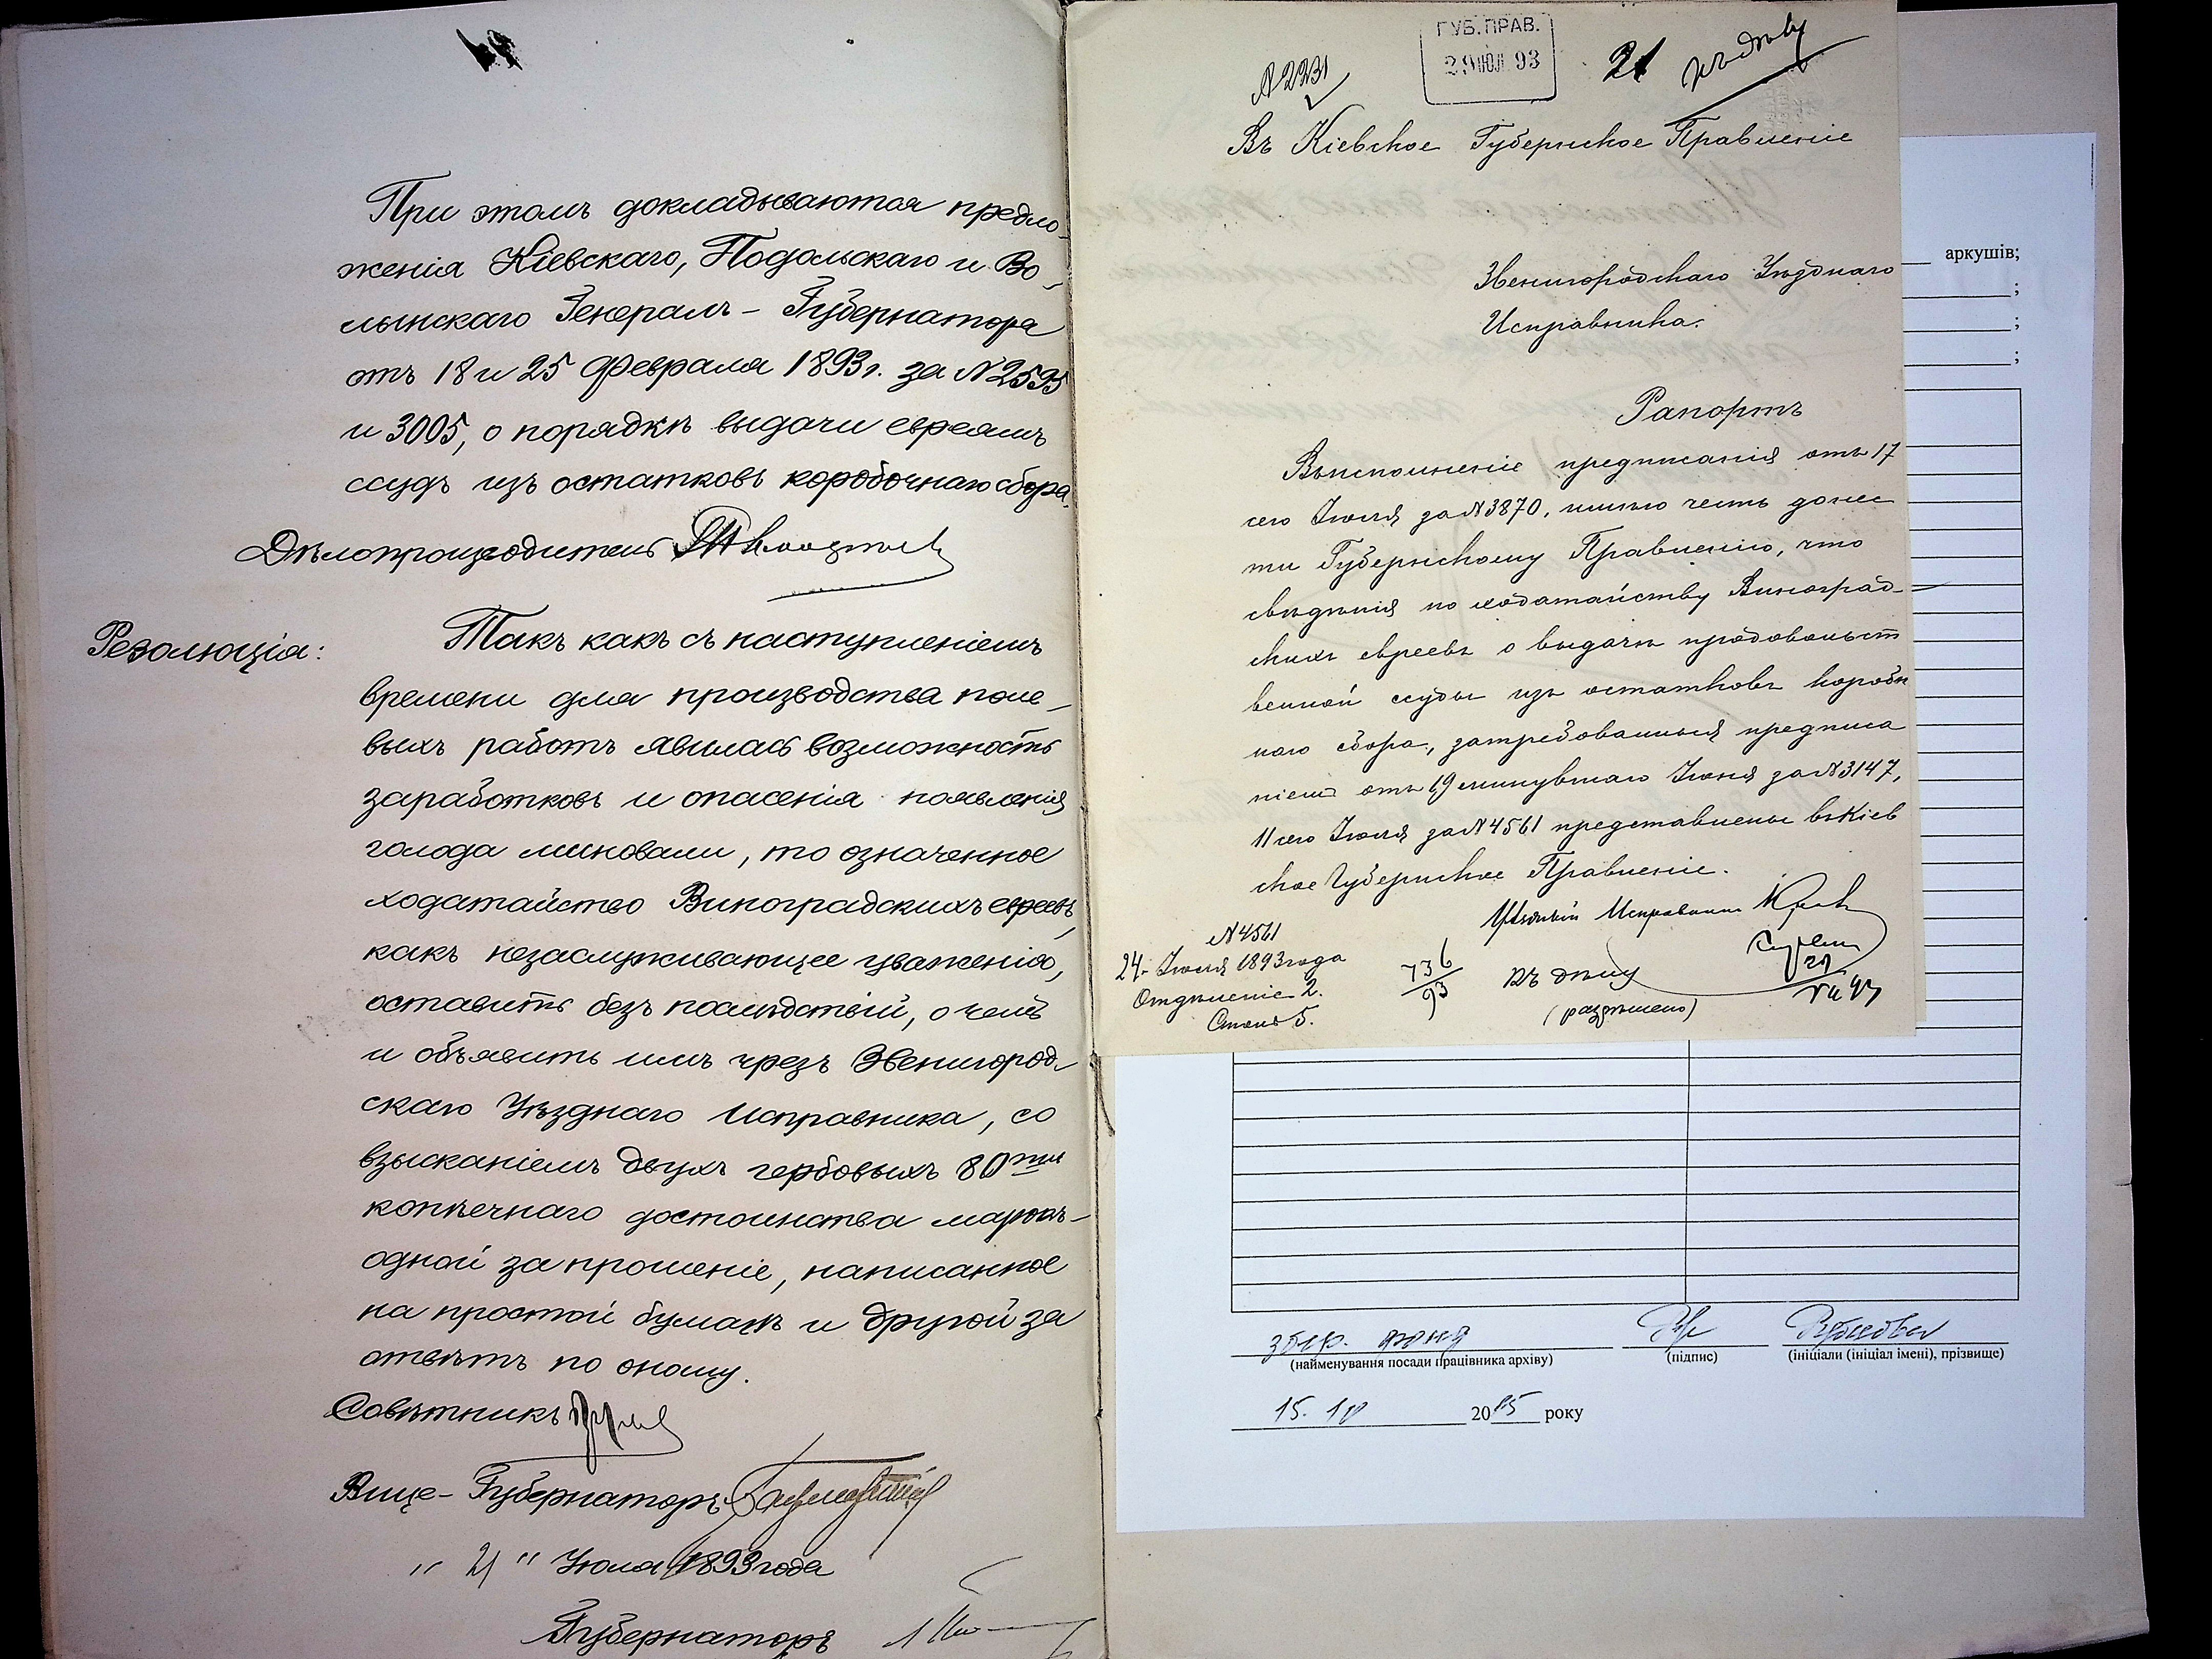 При этомъ докладываются предло-
женія Кіевскаго, Подольскаго и Во-
лынскаго Генералъ-Губернатора
отъ 18 и 25 Февраля 1893 г. за № 2595
и 3005, о порядкѣ выдачи евреямъ
ссудъ изъ остатковъ коробочнаго сбора.
Дѣлопроизводитель
Резолюція:
Такъ какъ съ наступленіемъ
времени для производства поле-
выхъ работъ явилась возможность
заработковъ и опасенія появленія
голода миновали, то означенное
ходатайство Виноградскихъ евреевъ,
какъ незаслуживающее уваженія,
оставить безъ послѣдствій, о чемъ
и объявить имъ чрезъ Звенигород-
скаго Уѣзднаго Исправника, со
взысканіемъ двухъ гербовыхъ 80ти
копѣечнаго достоинства марокъ-
одной за прошеніе, написанное
на простой бумагѣ и другой за
отвѣтъ по оному.
Совѣтникъ
Вице-Губернаторъ
" 21 " Іюля 1893 года
Губернаторъ
ГУБ. ПРАВ.
29 ІЮЛ 93
№ 2231
21
къ дѣлу
Въ Кіевское Губернское Правленіе
Звенигородскаго Уѣзднаго
Исправника.
Рапортъ
Въ исполненіе предписанія отъ 17
сего Іюля за № 3870, имѣю честь донес
ти Губернскому Правленію, что
свѣдѣнія по ходатайству Виноград-
скихъ евреевъ о выдачѣ продовольст
венной ссуды изъ остатковъ коробоч
наго сбора, затребованныя предписа
ніемъ отъ 19 минувшаго Іюня за № 3147,
11 сего Іюля за № 4561 представлены въ Кіев
ское Губернское Правленіе.
Уѣздный Исправникъ
№ 4561
24 Іюля 1893 года
Отдѣленіе 2.
Столъ 5.
736
93
Къ дѣлу
(разрѣшено)
аркушів;
;
;
;
збер. фонд
(найменування посади працівника архіву)
(підпис)
(ініціали (ініціал імені), прізвище)
15. 10 2015 року